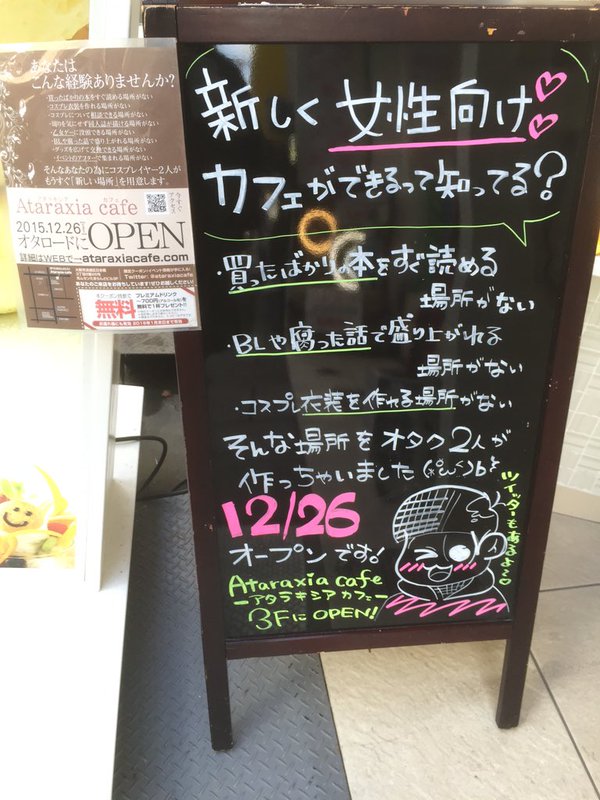 あなたは
こんな経験ありませんか？
・買ったばかりの本をすぐ読める場所がない
・コスプレ衣装を作れる場所がない
・コスプレについて相談できる場所がない
・周りを気にせず同人誌が描ける場所がない
・乙女ゲーに没頭できる場所がない
・BLや腐った話で盛り上がれる場所がない
・グッズを広げて交換できる場所がない
・イベントのアフターで集まれる場所がない
そんなあなたの為にコスプレイヤー2人が
もうすぐ「新しい場所」を用意します。
Ataraxia cafe
今すぐ
アクセス
2015.12.26
オタロードに OPEN
詳細はWEBで→ataraxiacafe.com
Twitter: @ataraxiacafe
あなたのご来店をお待ちしています！ぜひお越しください！
プレミアムドリンク
無料
新しく 女性向け
カフェができるって知ってる？
・買ったばかりの本をすぐ読める
場所がない
・BLや腐った話で盛り上がれる
場所がない
・コスプレ衣装を作れる場所がない
そんな場所をオタク2人が
作っちゃいました
12/26
オープンです！
Ataraxia cafe
ーアタラキシアカフェー
3FにOPEN!
ツイッターもあるよ